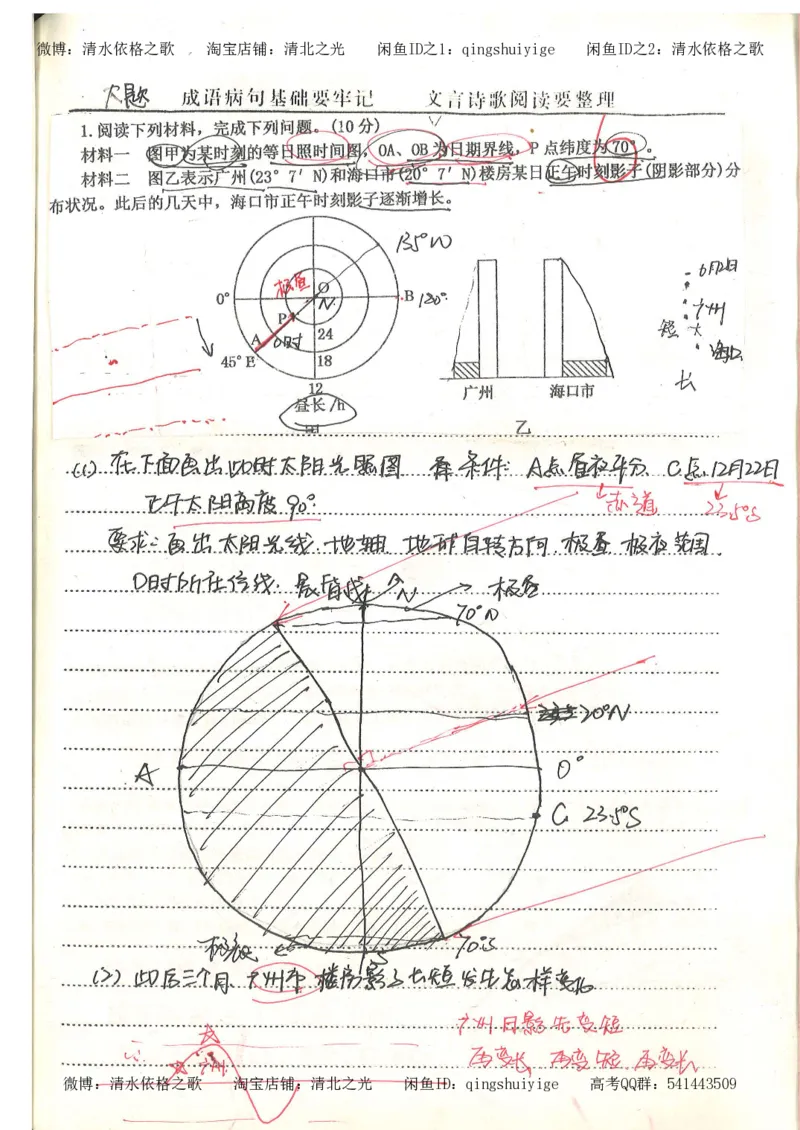 微博：清水依格之歌　淘宝店铺：清北之光　闲鱼ID之1：qingshuiyige　闲鱼ID之2：清水依格之歌
大题　成语病句基础要牢记　文言诗歌阅读要整理
1.阅读下列材料，完成下列问题。(10分)
材料一　图甲为某时刻的等日照时间图，OA、OB为日期界线，P点纬度为70°。
材料二　图乙表示广州(23°7′N)和海口市(20°7′N)楼房某日正午时刻影子(阴影部分)分
布状况。此后的几天中，海口市正午时刻影子逐渐增长。
135°W
6月22日
极昼
O
0°
N
B 180°
广州
P
短
A
0时
24
海口
45°E
18
长
12
广州
海口市
昼长/h
乙
(1) 在下面画出此时太阳光照图　条件：A点昼夜平分　C点12月22日
正午太阳高度90°
赤道
23.5°S
要求：画出太阳光线、地轴、地球自转方向、极昼极夜范围
0时所在经线、晨昏线
N
极昼
70°N
20°N
A
0°
C 23.5°S
极夜
S
70°S
(2) 此后三个月，广州市楼房影子长短发生怎样变化
广州日影先变短
再变长 再变短 再变长
广州
微博：清水依格之歌　淘宝店铺：清北之光　闲鱼ID：qingshuiyige　高考QQ群：541443509